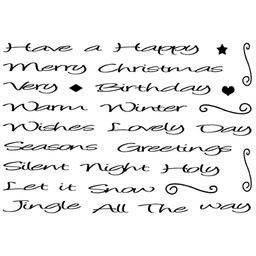 Have a Happy
Merry Christmas
Very Birthday
Warm Winter
Wishes Lovely Day
Seasons Greetings
Silent Night Holy
Let it Snow
Jingle All The way